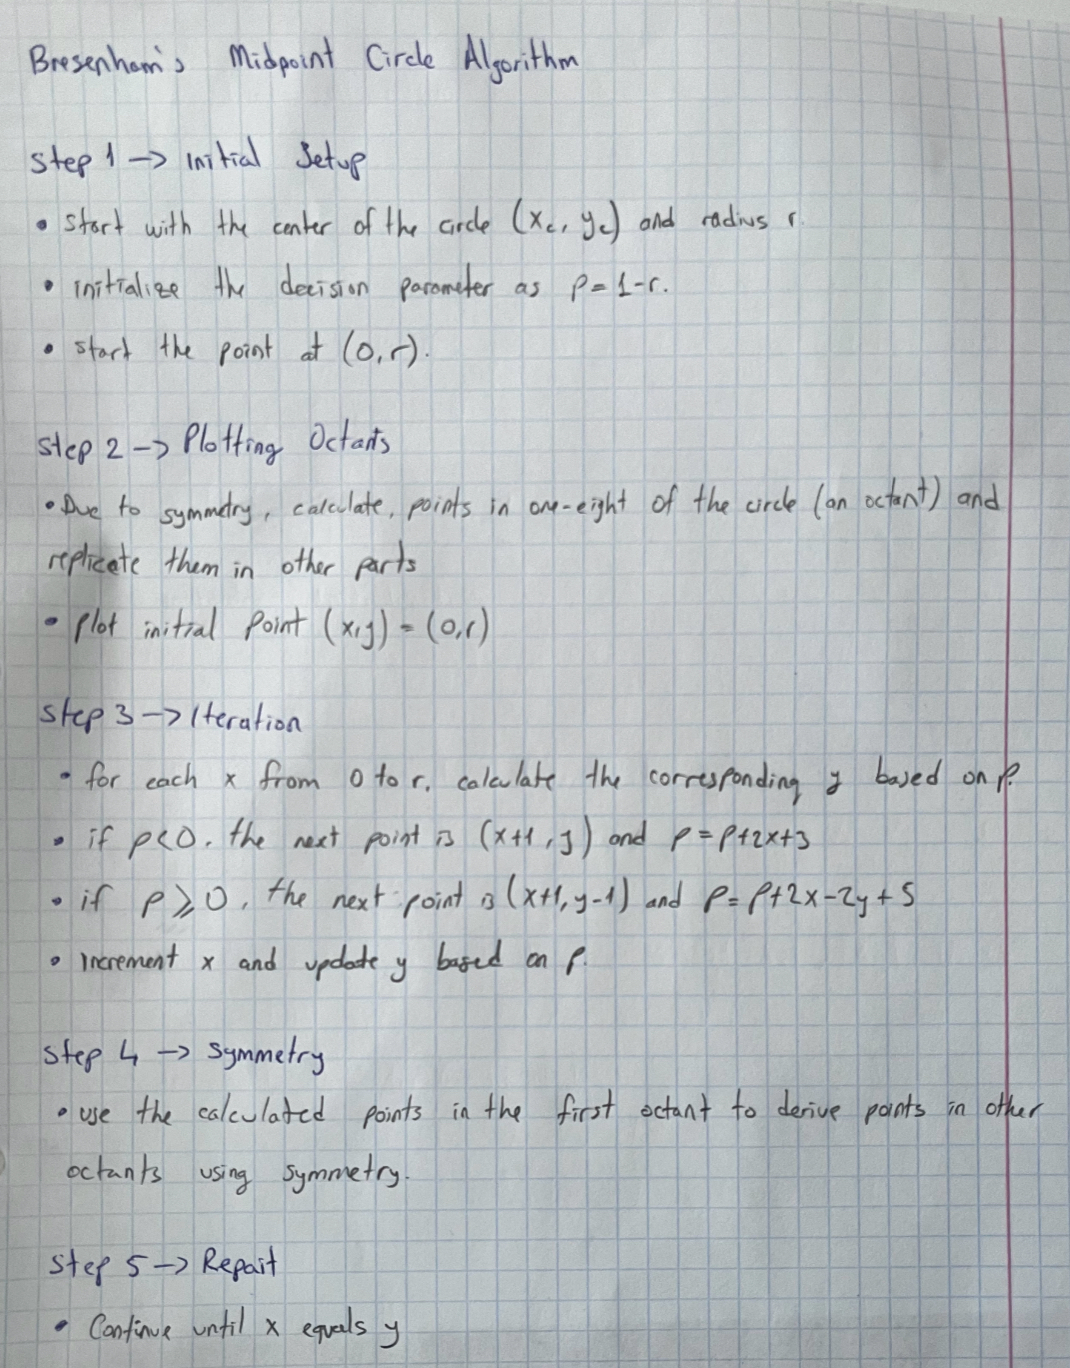 Bresenham's Midpoint Circle Algorithm
Step 1 → Initial Setup
• Start with the center of the circle (xc, yc) and radius r.
• initialize the decision parameter as p = 1-r.
• start the point at (0,r).
Step 2 → Plotting Octants
• Due to symmetry, calculate, points in one-eight of the circle (an octant) and
replicate them in other parts
• Plot initial Point (x,y) = (0,r)
Step 3 → Iteration
• for each x from 0 to r, calculate the corresponding y based on p.
• if p<0, the next point is (x+1, y) and p = p+2x+3
• if p ≥ 0, the next point is (x+1, y-1) and p = p+2x-2y+5
• Increment x and update y based on p.
Step 4 → Symmetry
• use the calculated points in the first octant to derive points in other
octants using symmetry.
Step 5 → Repait
• Continue until x equals y